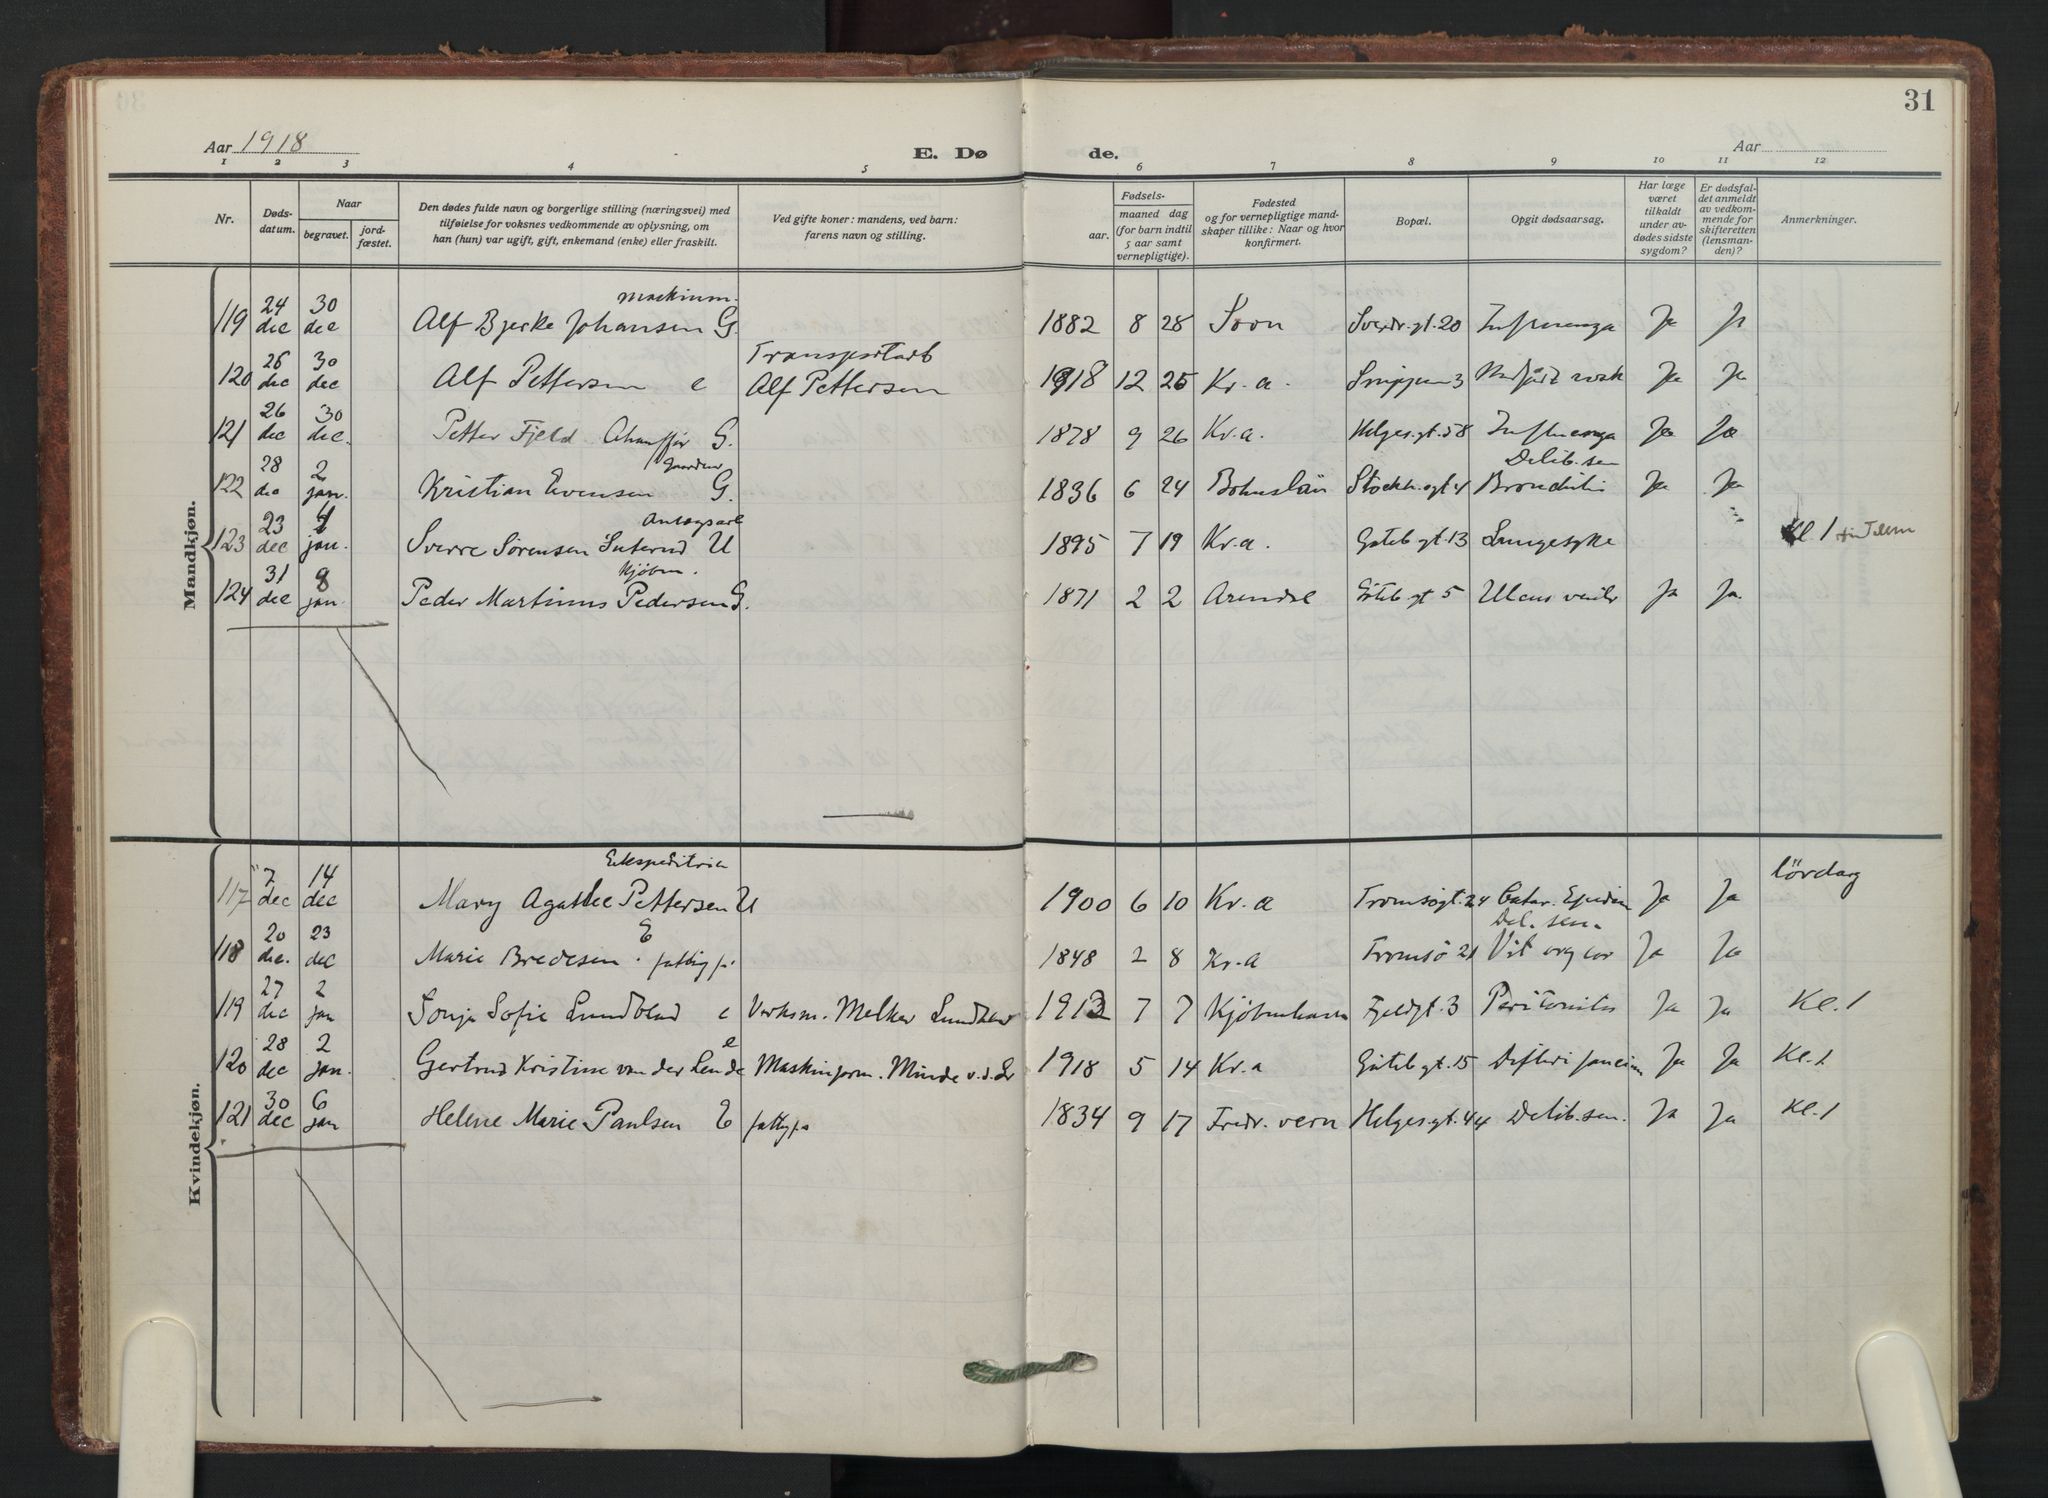 31
Aar 1918
E. Dø
de.
Aar
1 2 3 4 5 6 7 8 9 10 11 12
Nr.
Døds-
datum.
Naar
begravet.
jord-
fæstet.
Den dødes fulde navn og borgerlige stilling (næringsvei) med
tilføielse for voksnes vedkommende av oplysning, om
han (hun) var ugift, gift, enkemand (enke) eller fraskilt.
Ved gifte koner: mandens, ved barn:
farens navn og stilling.
Fødsels-
aar.
maaned dag
(for barn indtil
5 aar samt
vernepligtige).
Fødested
og for vernepligtige mand-
skaper tillike: Naar og hvor
konfirmert.
Bopæl.
Opgit dødsaarsag.
Har læge
været
tilkaldt
under av-
dødes sidste
sygdom?
Er dødsfal-
det anmeldt
av vedkom-
mende for
skifteretten
(lensman-
den)?
Anmerkninger.
Mandkjøn.
maskinm.
119 24 dec 30 dec Alf Bjerke Johansen G. 1882 8 28 Soon Sverdr.gt.20 Influenza Ja Ja
Transportarb
120 26 dec 30 dec Alf Pettersen e Alf Pettersen 1918 12 25 Kr.a. 3 Ja Ja
121 26 dec 30 dec. Petter Fjeld Chauffør G. 1878 9 26 Kr.a. Helges.gt.58 Influenza Ja Ja
Delib.sen
122 28 dec 2 jan. Kristian Evensen G. 1836 6 24 Bohuslän Stockh.gt 4 Bronchitis Ja Ja
123 23 dec 4 jan. Sverre Sørensen U 1895 7 19 Kr.a. Goteb gt.13 Lungesyke Kl.1
Kjøbm.
124 31 dec 8 jan. Peder Martinus Pedersen G. 1871 2 2 Arendal Göteb gt 5 Ulcus ventr Ja Ja
Kvindekjøn.
Ekspeditrice lördag
117 7 dec 14 dec Mary Agathe Pettersen U 1900 6 10 Kr.a Tromsøgt.24 Catar. Ja Ja
Del. sen.
118 20 dec. 23 dec Marie Bredesen E fattig p. 1848 2 8 Kr.a Tromsö 21 Vit org cor Ja Ja
119 27 dec 2 jan Sonja Sofie Lundblad e Verksm. Melker Lundblad 1913 7 7 Kjøbenhavn Fjeldgt.3 Peritonitis Ja Ja Kl.1
120 28 dec 2 jan. Gertrud Kristine van der Lende e Maskinform. Minde v.d.Le 1918 5 14 Kr.a Göteb gt.15 Difteri Ja Ja Kl.1
121 30 dec 6 jan Helene Marie Paulsen E fattigp. 1834 9 17 Fredr. vern Helges.gt.44 Delib.sen. Ja Ja Kl.1